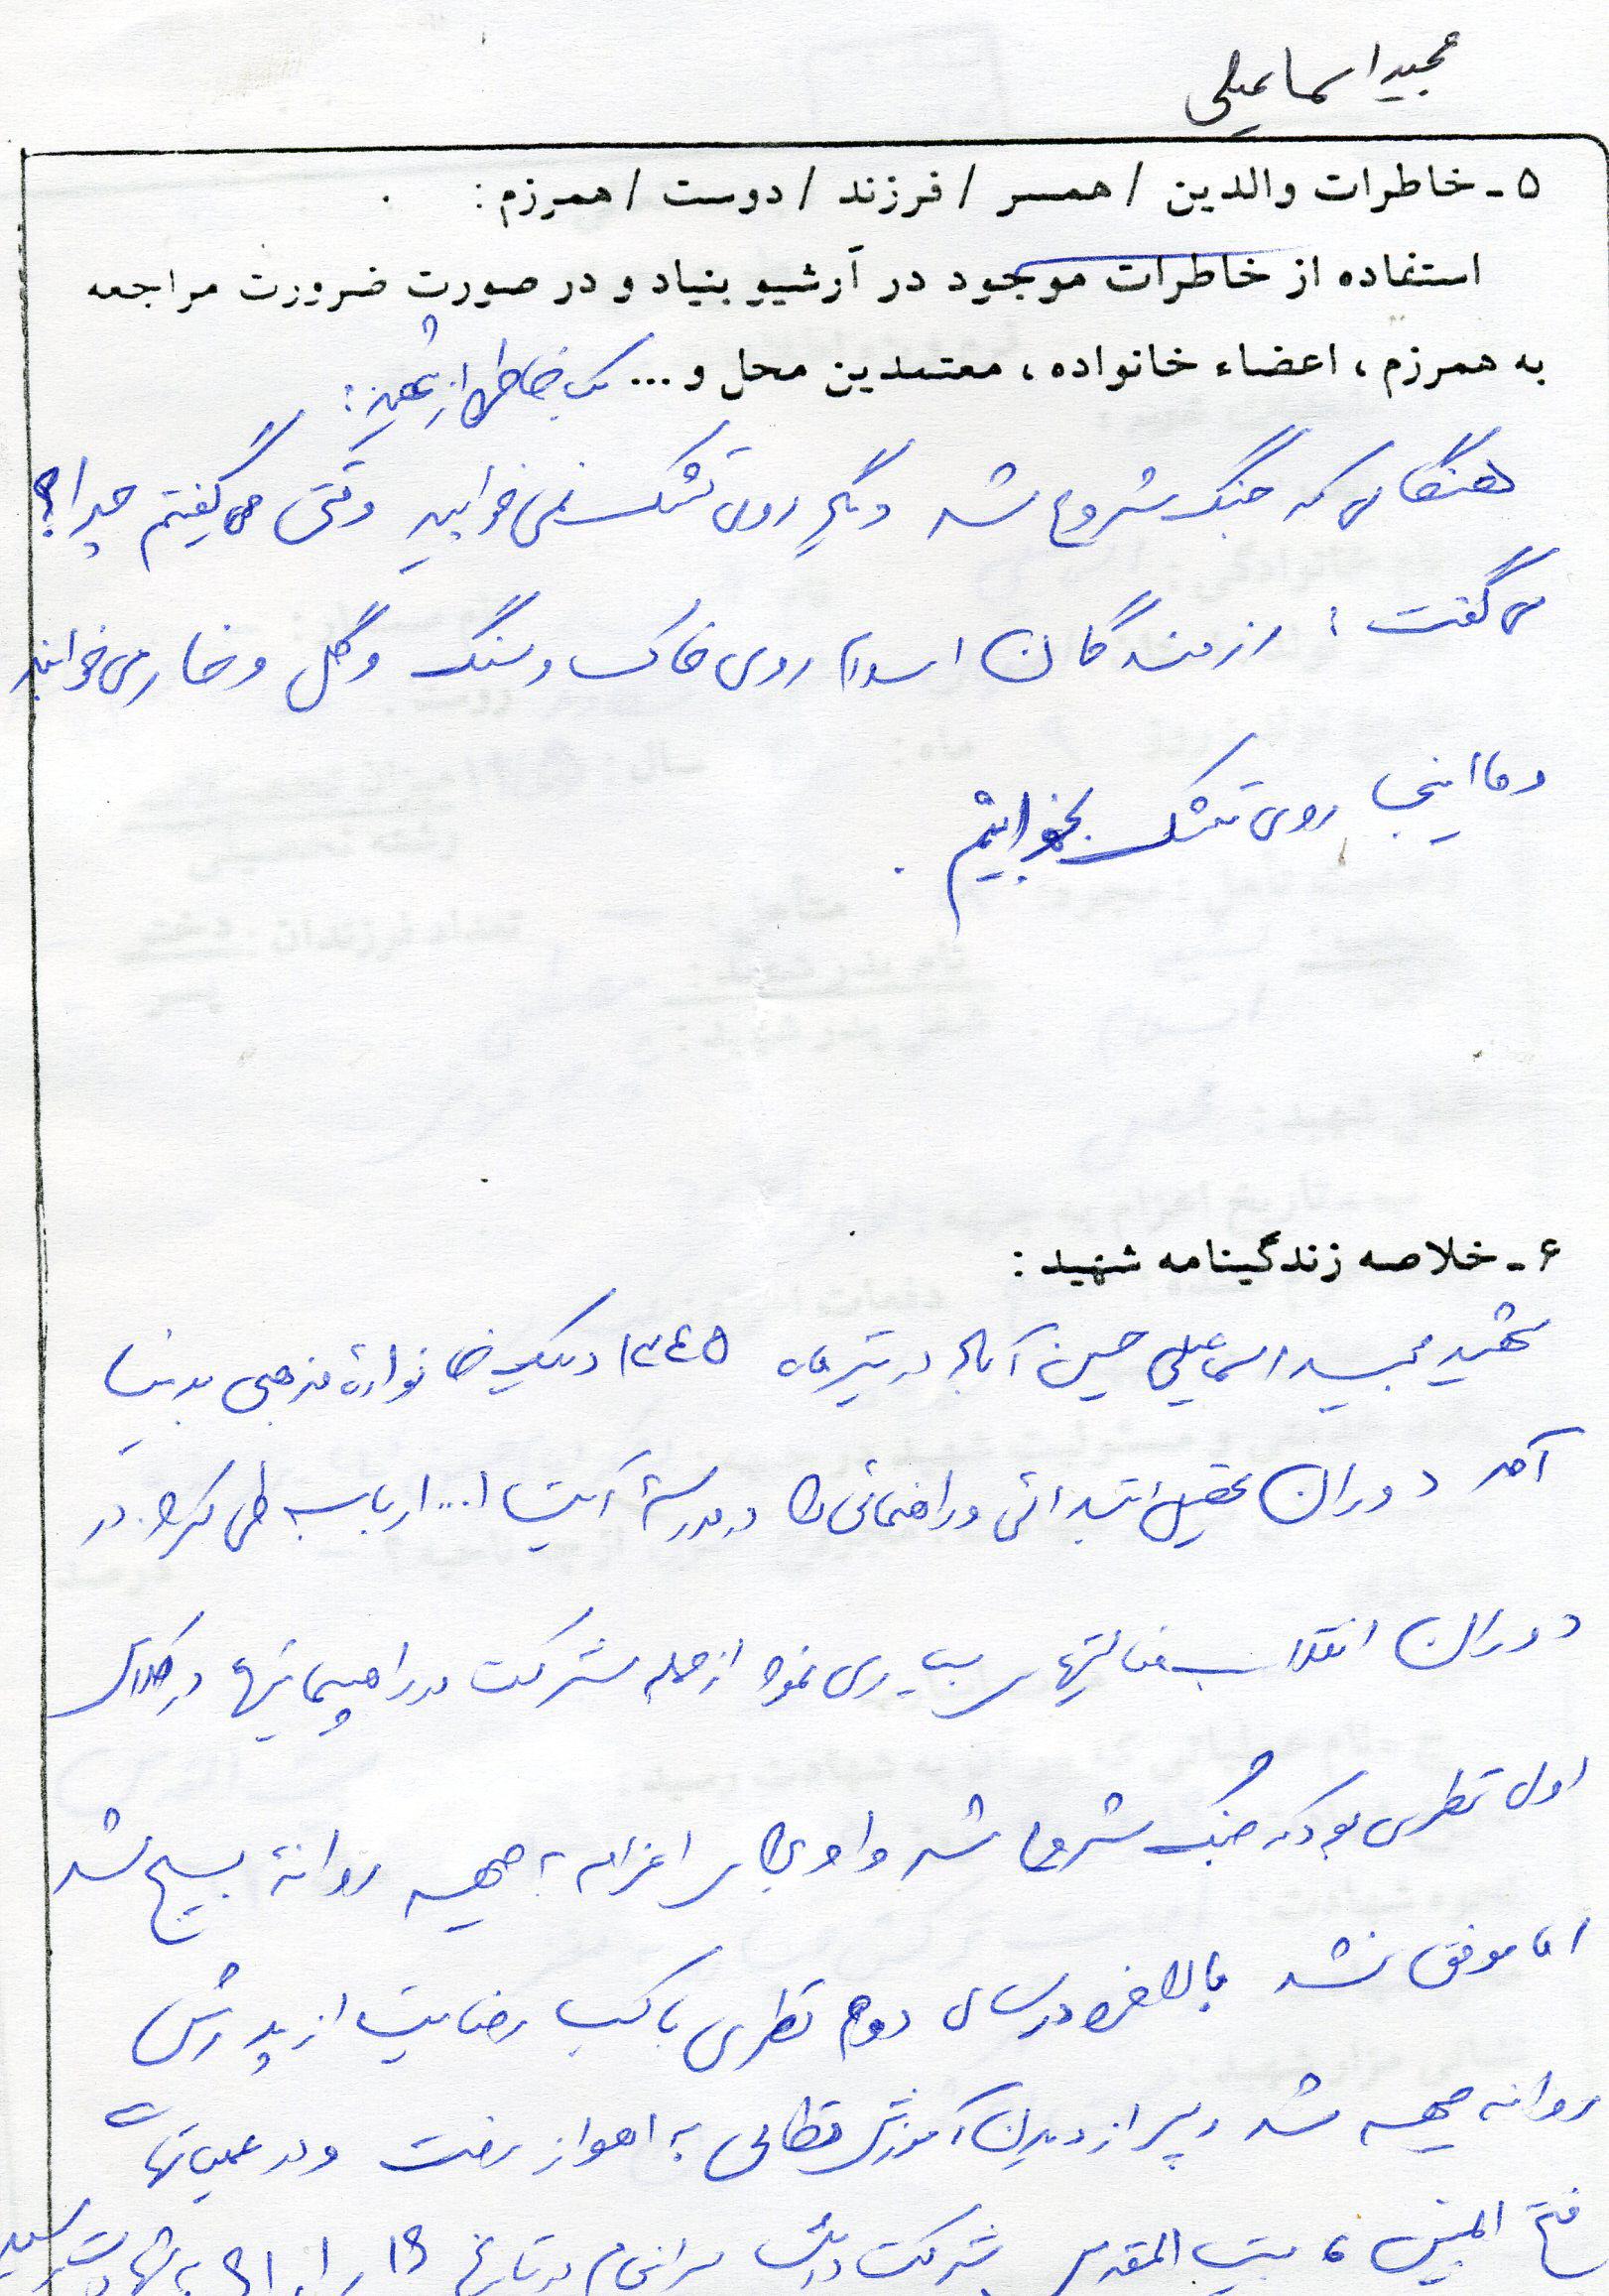 مجید اسماعیلی
۵ - خاطرات والدین / همسر / فرزند / دوست / همرزم :
استفاده از خاطرات موجود در آرشیو بنیاد و در صورت ضرورت مراجعه
به همرزم ، اعضاء خانواده ، معتمدین محل و ... یک خاطره از شهید :
هنگامی که جنگ شروع شد دیگر روی تشک نمی خوابید وقتی می گفتیم چرا؟
می گفت : رزمندگان اسلام روی خاک و سنگ و گل و خار می خوابند
و ما اینجا روی تشک بخوابیم .
۶ - خلاصه زندگینامه شهید :
شهید مجید اسماعیلی حسین آباد در تیر ماه ۱۳۴۵ در یک خانواده مذهبی بدنیا
آمد دوران تحصیل ابتدائی و راهنمائی را در مدرسه آیت ا... ارباب طی کرد. در
دوران انقلاب فعالیتهای بسیاری نمود از جمله شرکت در راهپیمائیها در کلاس
اول نظری بود که جنگ شروع شد و او برای اعزام به جبهه روانه بسیج شد
اما موفق نشد بالاخره در سال دوم نظری با کسب رضایت از پدرش
روانه جبهه شد و پس از دیدن آموزش نظامی به اهواز رفت و در عملیاتهای
فتح المبین ، بیت المقدس شرکت داشت سرانجام در تاریخ شهادت رسید